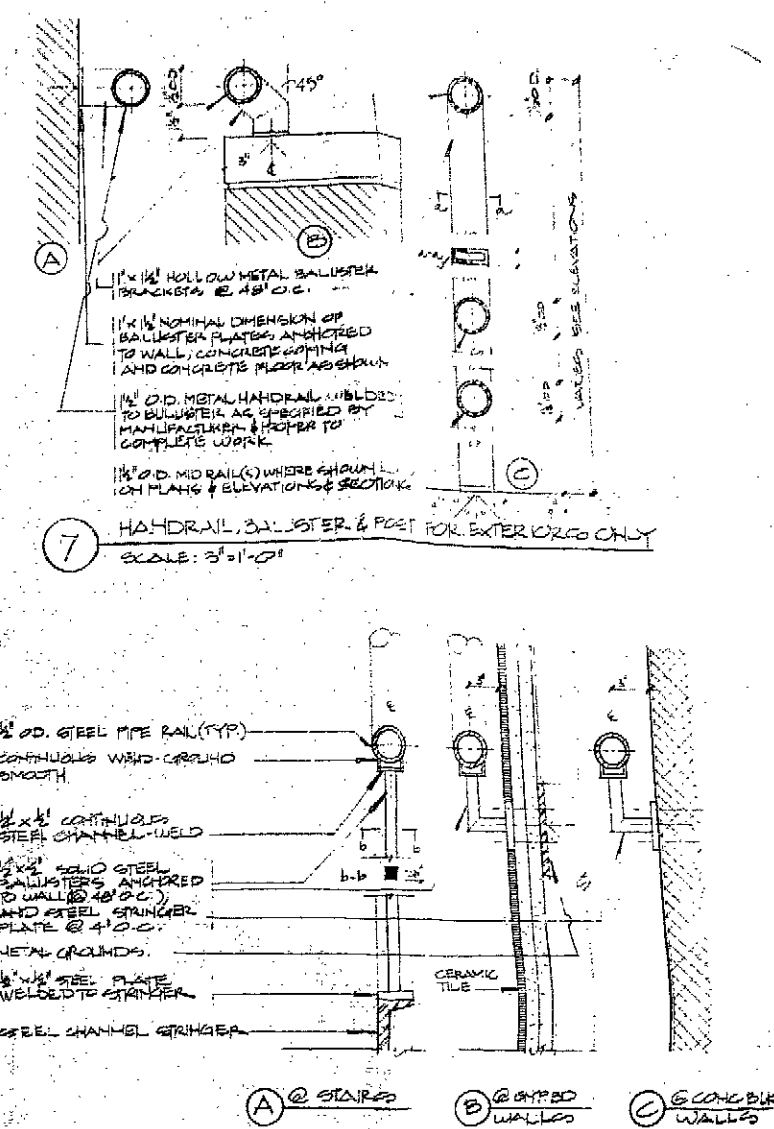 45°
3"
A
B
1" x 1½" HOLLOW METAL BALUSTER
BRACKETS @ 48" O.C.
1" x 1½" NOMINAL DIMENSION OF
BALUSTER PLATES ANCHORED
TO WALL, CONCRETE COPING
AND CONCRETE FLOOR AS SHOWN
1½" O.D. METAL HANDRAIL WELDED
TO BULUSTER AS SPECIFIED BY
MANUFACTURER & PROPER TO
COMPLETE WORK
1½" O.D. MID RAIL(S) WHERE SHOWN
ON PLANS & ELEVATIONS & SECTIONS
VARIES SEE ELEVATIONS
C
7 HANDRAIL, BALUSTER & POST FOR EXTERIORES ONLY
SCALE: 3"=1'-0"
½" OD. STEEL PIPE RAIL (TYP.)
CONTINUOUS WELD-GROUND
SMOOTH
½" x ½" CONTINUOUS
STEEL CHANNEL-WELD
½" x ½" SOLID STEEL
BALUSTERS ANCHORED
TO WALL (@ 48" O.C.)
AND STEEL STRINGER
PLATE @ 4' O.C.
METAL GROUNDS.
½" x ½" STEEL PLATE
WELDED TO STRINGER
STEEL CHANNEL STRINGER
b-b
CERAMIC
TILE
3"
3"
A @ STAIRS
B @ GYP BD
WALLS
C @ CONC BLK
WALLS